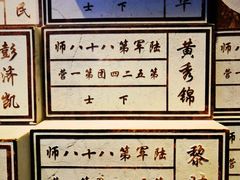 民
士
彭济凯
陆军第八十八师
第五二四团第一营
下士
黄秀锦
陆军第八十八师
第五二四团第一营
下士
黎